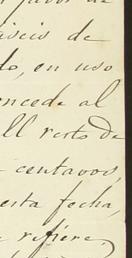 favor de
iseis de
do, en uso
oncede al
ll resto de
centavos,
esta fecha,
refiere,